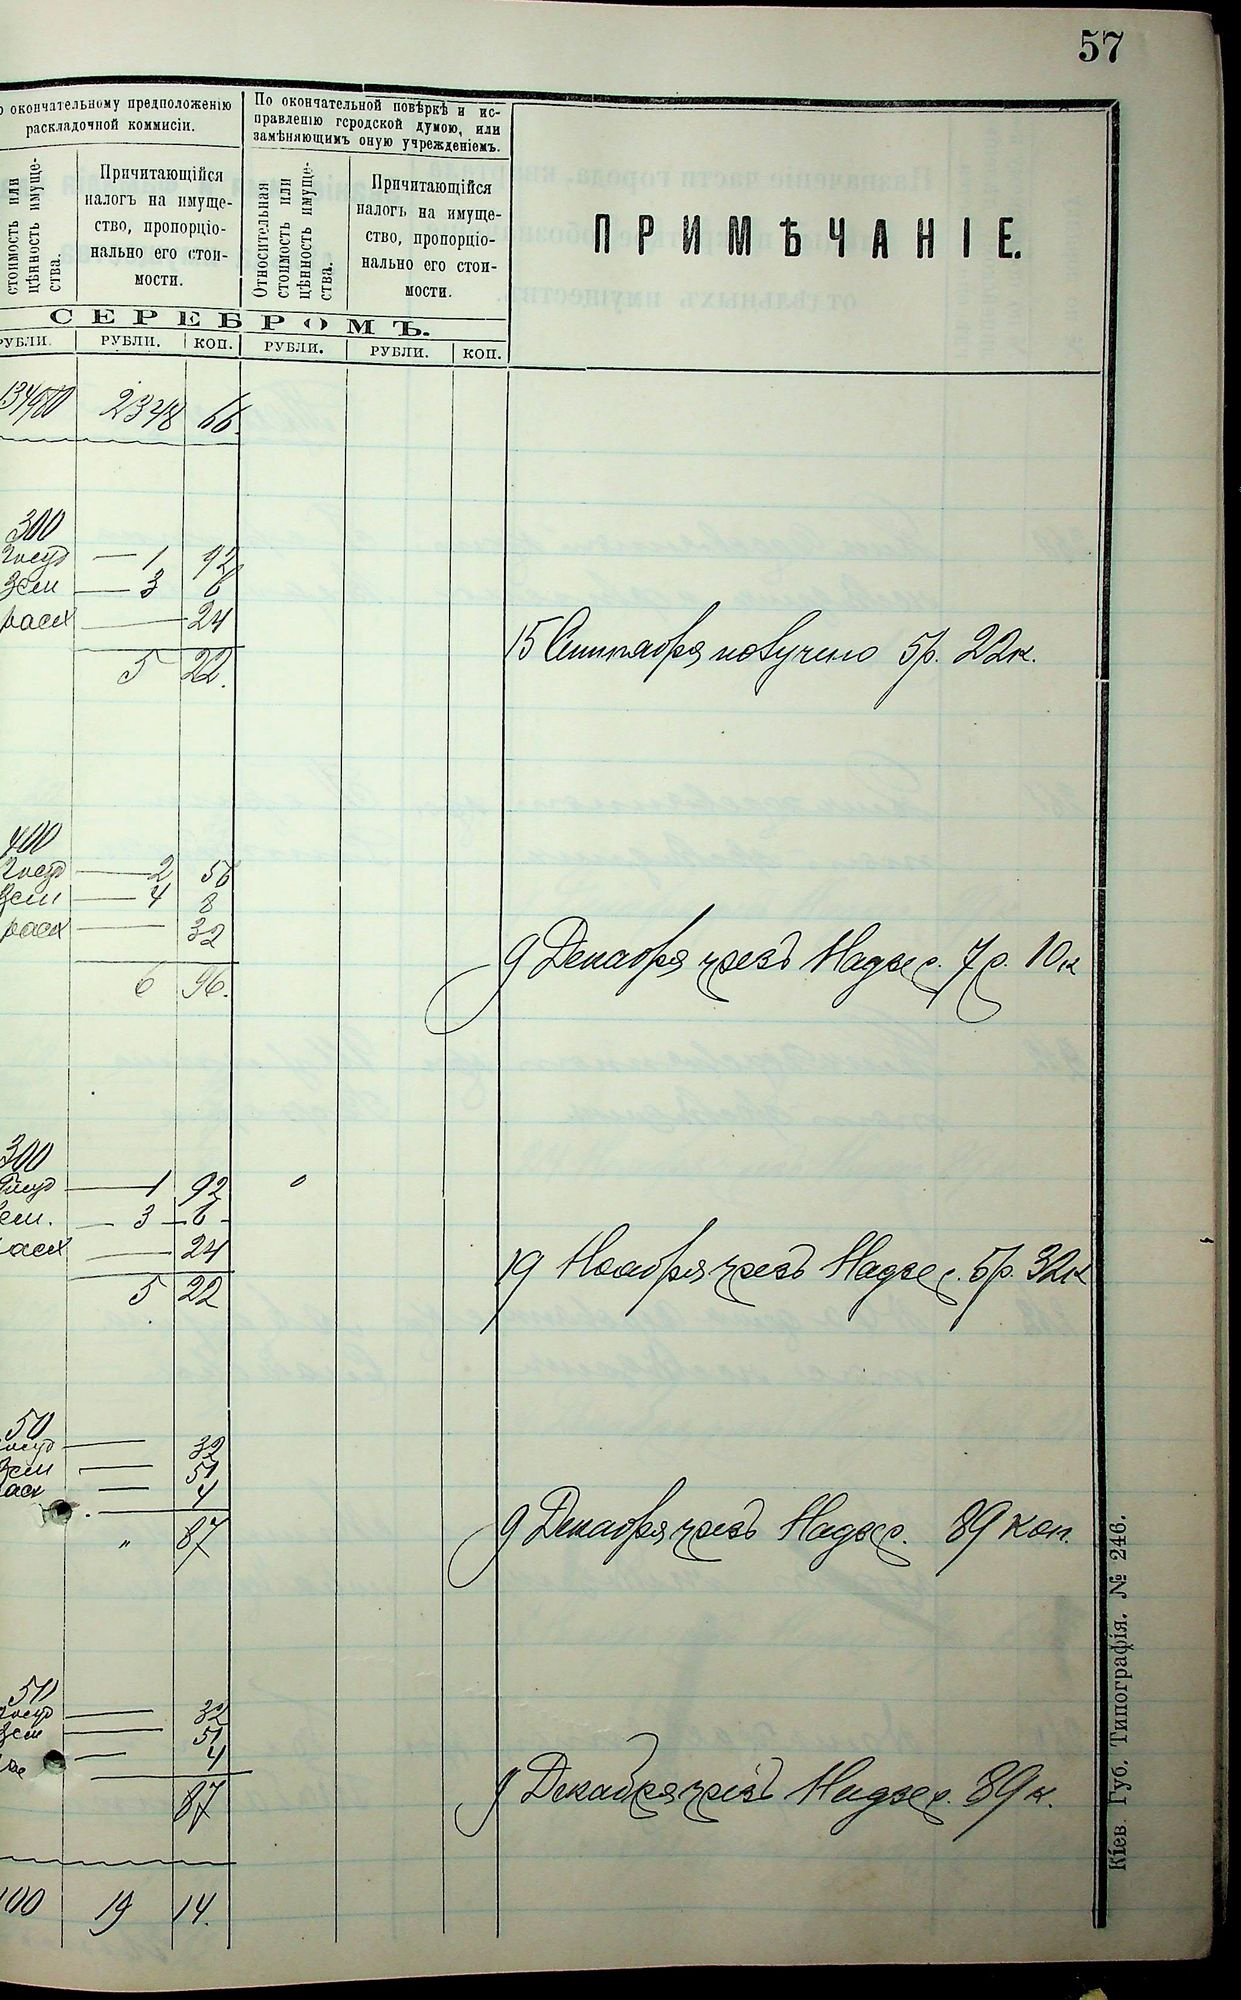 57
о окончательному предположенію
раскладочной коммисіи.
По окончательной повѣркѣ и ис-
правленію городской думою, или
замѣняющимъ оную учрежденіемъ.
стоимость или
цѣнность имуще-
ства.
Причитающійся
налогъ на имуще-
ство, пропорціо-
нально его стои-
мости.
Относительная
стоимость или
цѣнность имуще-
ства.
Причитающійся
налогъ на имуще-
ство, пропорціо-
нально его стои-
мости.
ПРИМѢЧАНІЕ.
СЕРЕБРОМЪ.
РУБЛИ. РУБЛИ. КОП. РУБЛИ. РУБЛИ. КОП.
2348 66.
300
Госуд — 1 92
Зем — 3 6
расх — 24
5 22.
15 Сентября получено 5р. 22к.
400
Госуд — 2 56
Зем — 4 8
расх — 32
6 96.
9 Декабря чрезъ Надзер. 7р. 10к
300
Госуд — 1 92
Зем. — 3 — 6 -
расх — 24
5 22
19 Ноября чрезъ Надзер. 5р. 32к
50
Госуд — 32
Зем — 51
расх — 4
„ 87
9 Декабря чрезъ Надзер. 89 коп.
50
Госуд — 32
Зем — 51
4
87
9 Декабря чрезъ Надзер. 89к.
00 19 14.
Кіев. Губ. Типографія. № 246.